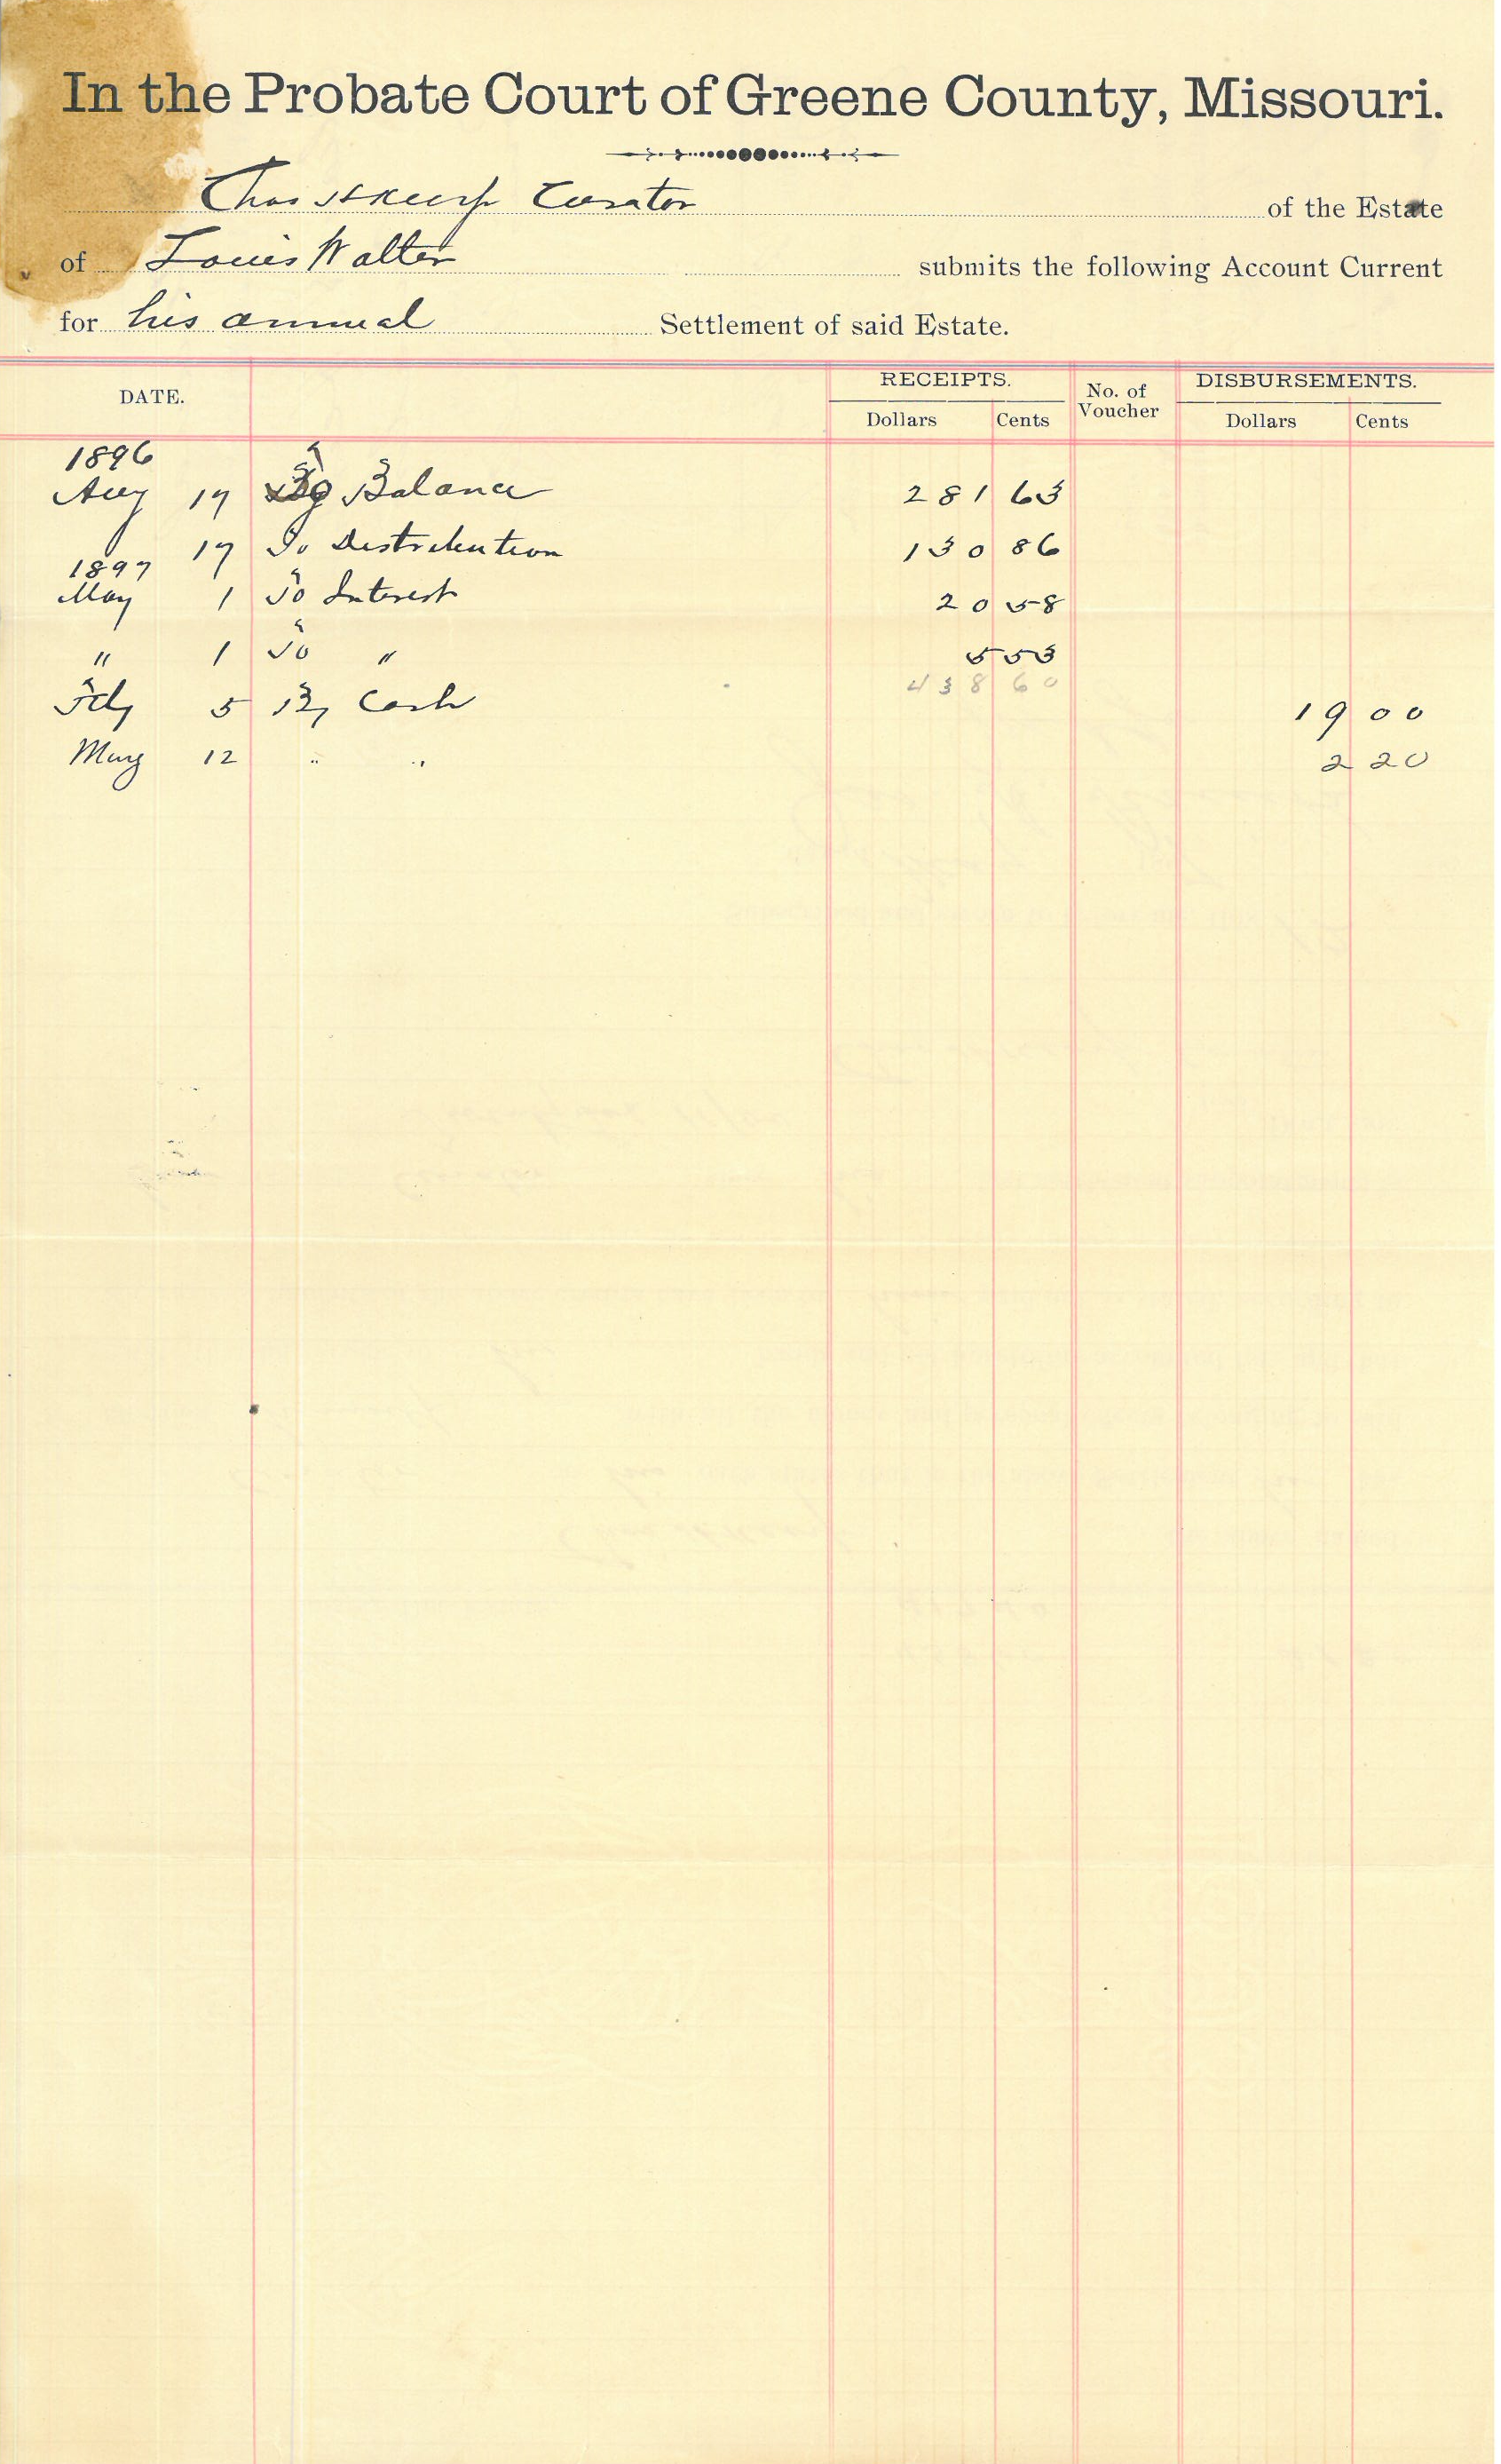 In the Probate Court of Greene County, Missouri.
Chas Curator of the Estate
of Louis Walter submits the following Account Current
for his annual Settlement of said Estate.
DATE. RECEIPTS. No. of Voucher DISBURSEMENTS.
Dollars Cents Dollars Cents
1896
Aug 17 To Balance 281 63
17 To Distribution 130 86
1897
May 1 To Interest 20 58
" 1 To " 5 53
438 60
5 By Cash 19 00
12 " " 2 20